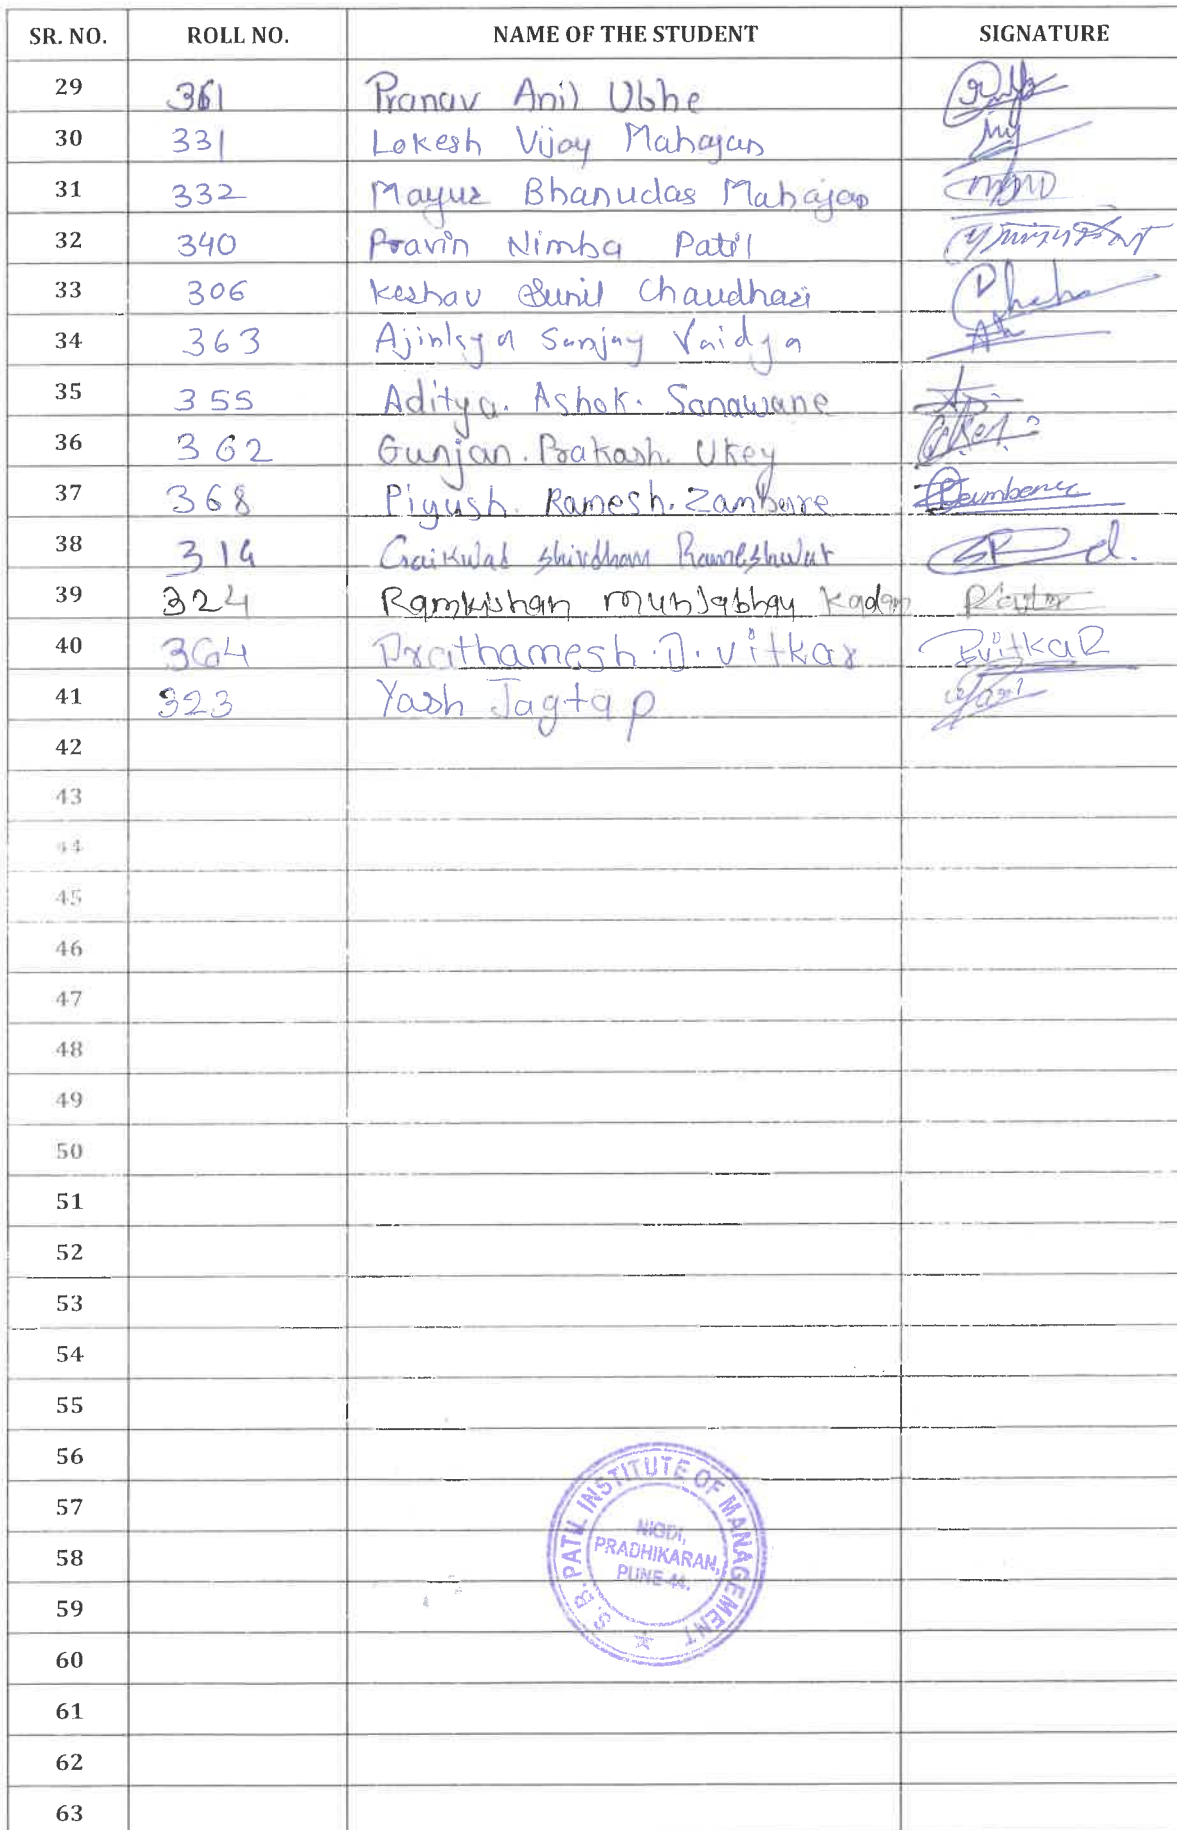 SR. NO. ROLL NO. NAME OF THE STUDENT SIGNATURE
29 361 Pranav Anil Ubhe
30 331 Lokesh Vijay Mahajan
31 332 Mayur Bhanudas Mahajan
32 340 Pravin Nimba Patil
33 306 Keshav Sunil Chaudhari
34 363 Ajinkya Sanjay Vaidya
35 355 Aditya. Ashok. Sonawane
36 362 Gunjan. Prakash. Ukey
37 368 Piyush. Ramesh. Zambare
38 314 Gaikwad Shivdham Rameshwar
39 324 Ramkishan munjabhay Kadam
40 364 Prathamesh. D. vitkar PvitkaR
41 323 Yash Jagtap
42
43
44
45
46
47
48
49
50
51
52
53
54
55
56
57
58
59
60
61
62
63
S. B. PATIL INSTITUTE OF MANAGEMENT
NIGDI,
PRADHIKARAN,
PUNE-44.